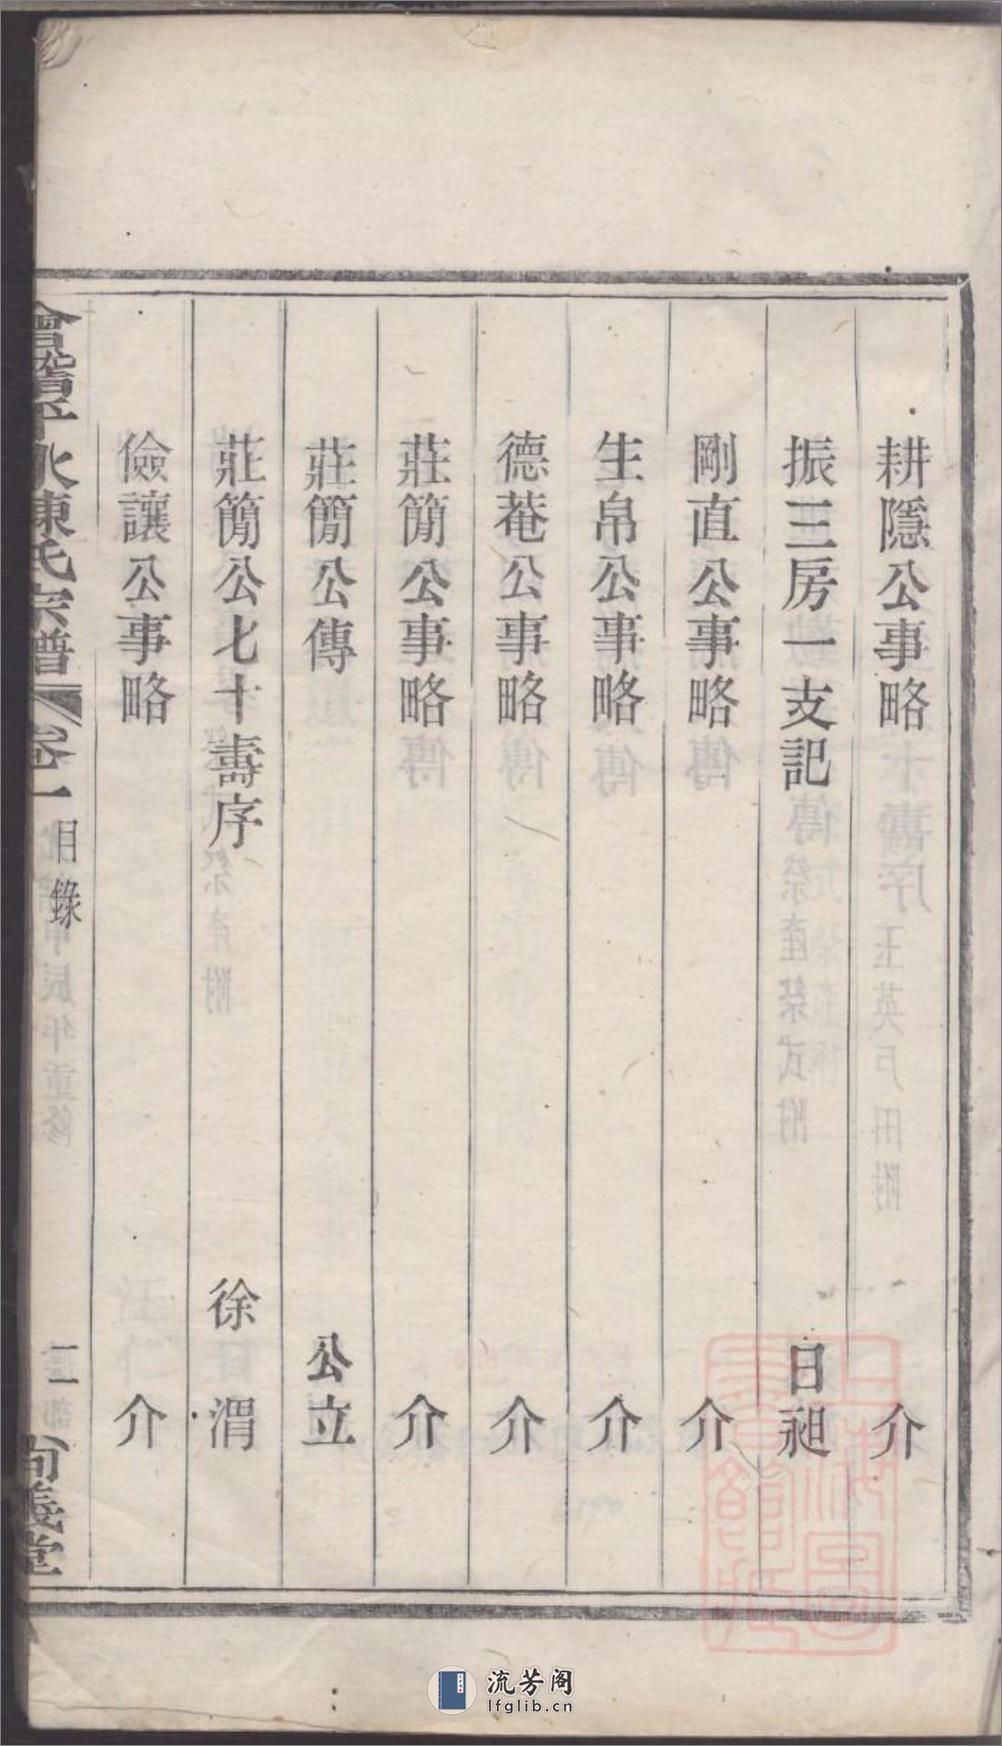 耕隱公事略 介
振三房一支記 日昶
剛直公事略 介
生帛公事略 介
德菴公事略 介
莊簡公事略 介
莊簡公傳 公立
莊簡公七十壽序 徐渭
儉讓公事略 介
會稽平水陳氏宗譜 卷一 目錄 二 尚義堂
流芳阁
lfglib.cn